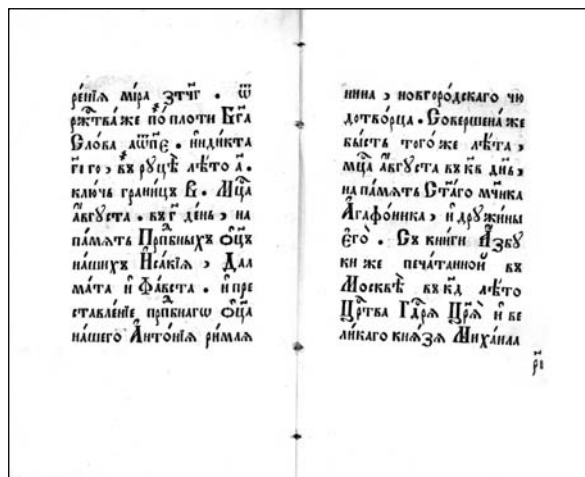 ре́нїѧ мі́ра ҂зтч҃г . ѿ
рж҃тва́ же по́ плоти Бг҃а
Сло́ва ҂аѿп҃е . и҆ндикта
г҃і го , въ руцѣ̀ лѣ́то а҃ .
ключь грани́цъ В . Мц҃а
а҆́вгꙋста . въ г҃ де́нь , на
па́мѧть Прпⷣбныхъ ѻ҆ц҃ъ
на́шихъ И҆са́кїѧ , Дал
ма́та и҆ Фа́вста . и҆ пре
ставле́нїе прпⷣбнагѡ ѻ҆ц҃а
на́шего А҆нто́нїѧ ри́млѧ
нина , новгоро́дскаго чю
дотво́рца . Соверше́на же
бы́сть того́ же лѣ́та ,
мц҃а а҆́вгꙋста въ к҃в дн҃ь ,
на па́мѧть Ст҃а́го мч҃ика
А҆гафо́ника , и҆ дрꙋжи́ны
є҆гѡ̀ . Съ кни́ги А҆́збꙋ
ки же печа́танной въ
Москвѣ̀ въ к҃д лѣ́то
Црⷭ҇тва Гдⷭ҇рѧ Цр҃ѧ̀ и҆ ве
ли́каго кнѧ́зѧ Михаи́ла
р҃і